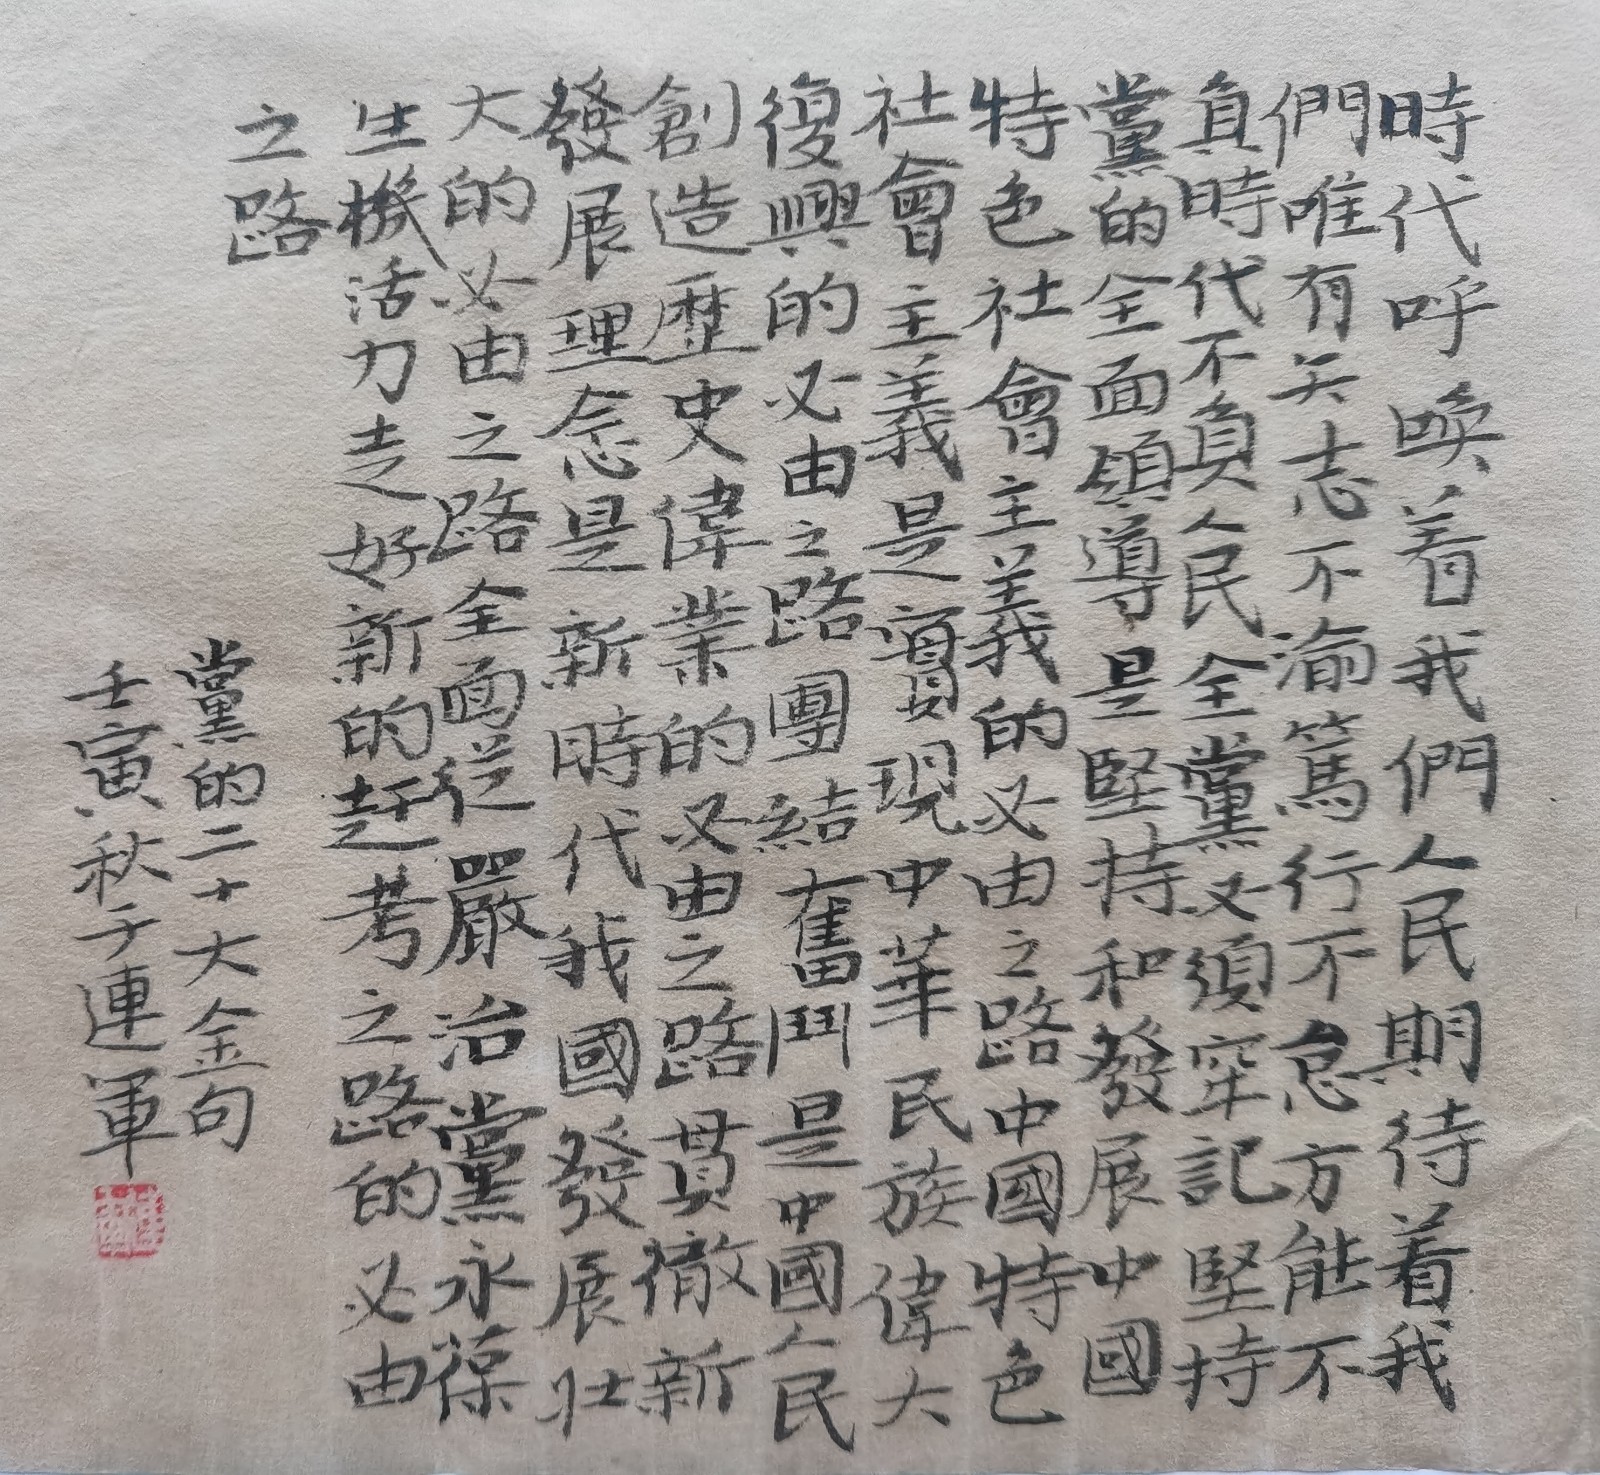 時代呼喚着我們人民期待着我
們唯有矢志不渝篤行不怠方能不
負時代不負人民全黨必須牢記堅持
黨的全面領導是堅持和發展中國
特色社會主義的必由之路中國特色
社會主義是實現中華民族偉大
復興的必由之路團結奮鬥是中國人民
創造歷史偉業的必由之路貫徹新
發展理念是新時代我國發展壯
大的必由之路全面從嚴治黨永葆
生機活力走好新的赶考之路的必由
之路
黨的二十大金句
壬寅秋于連軍